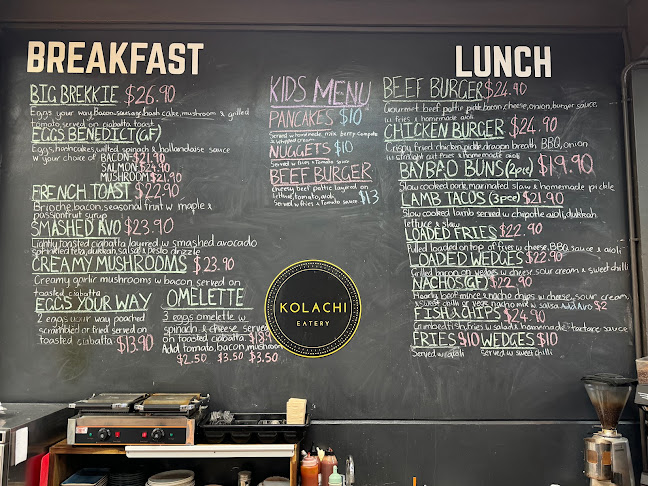 BREAKFAST
BIG BREKKIE $26.90
Eggs your way, Bacon, sausage, hash cake, mushroom & grilled
tomato served on ciabatta toast
EGGS BENEDICT (GF)
Eggs, hashcakes, wilted spinach & hollandaise sauce
w your choice of BACON $21.90
SALMON $24.90
MUSHROOM $21.90
FRENCH TOAST $22.90
Brioche, bacon, seasonal fruit w maple &
passionfruit syrup
SMASHED AVO $23.90
Lightly toasted ciabatta layered w smashed avocado
sprinkled feta, dukkah, salsa & pesto drizzle
CREAMY MUSHROOMS $23.90
Creamy garlic mushrooms w bacon served on
toasted ciabatta
EGGS YOUR WAY
2 eggs your way poached
scrambled or fried served on
toasted ciabatta $13.90
OMELETTE
3 eggs omelette w
spinach & cheese served
on toasted ciabatta
Add tomato, bacon, mushroom
$2.50 $3.50 $3.50
KIDS MENU
PANCAKES $10
Served w handmade mix berry compote
& whipped cream
NUGGETS $10
Served w fries & tomato sauce
BEEF BURGER
cheesy beef pattie layered on
lettuce, tomato, aioli $13
Served w fries & Tomato sauce
KOLACHI
EATERY
LUNCH
BEEF BURGER $24.90
Gourmet beef pattie, pickle, bacon, cheese, onion, burger sauce
w fries & homemade aioli
CHICKEN BURGER $24.90
Crispy fried chicken, pickle, dragon breath BBQ, onion
w straight cut fries & homemade aioli
BAYBAO BUNS (2pce) $19.90
Slow cooked pork, marinated slaw & homemade pickle
LAMB TACOS (3pce) $21.90
Slow cooked lamb served w chipotle aioli, dukkah,
lettuce & slaw
LOADED FRIES $22.90
Pulled loaded on top of fries w cheese, BBQ sauce & aioli
LOADED WEDGES $22.90
Grilled bacon on wedges w cheese, sour cream & sweet chilli
NACHOS (GF) $22.90
Hearty beef mince & nacho chips w cheese, sour cream,
& sweet chilli or vege nacho mix w salsa Add Avo $2
FISH & CHIPS $24.90
Crumbed fish, fries w salad & homemade tartare sauce
FRIES $10 WEDGES $10
Served w aioli Served w sweet chilli